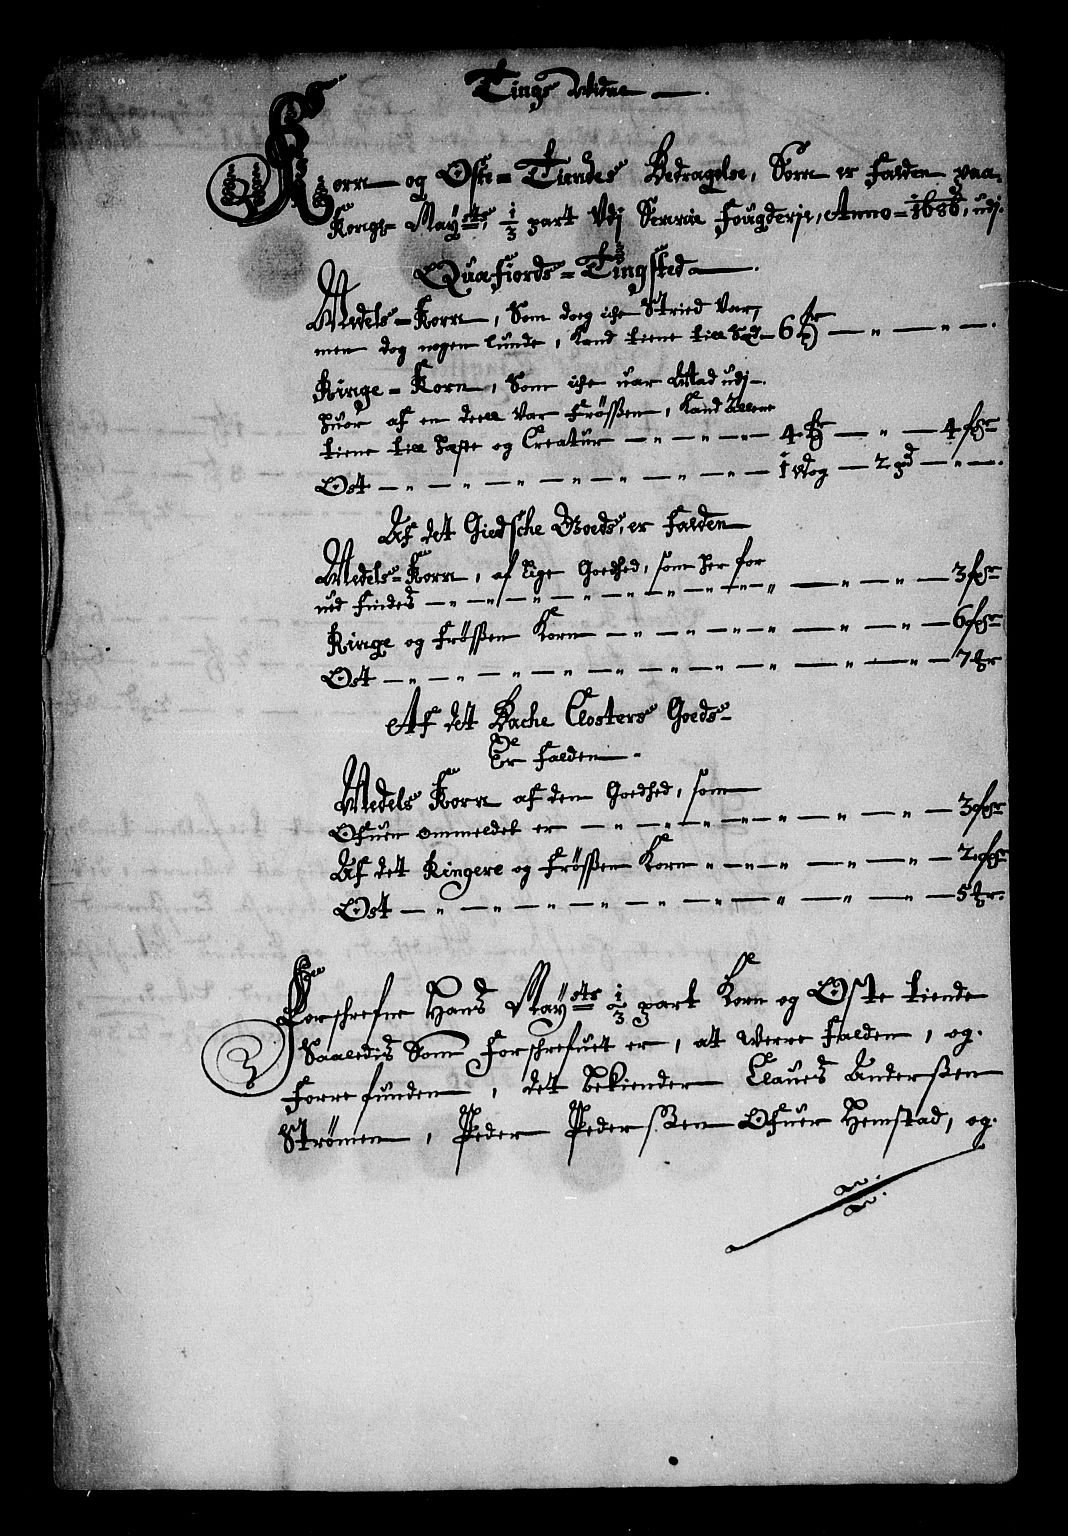 Tings Widne
Korn og Oste-Tiendes Bedragelse, Som er falden paa
Kongl. May:ts 1/3 part Udj Sennien Fougderje, Anno-1686, udj.
Quæfiords-Tingsted
Medels-Korn, Som doeg iche Stried var,
men dog nogen lunde, kand tiene till 6 — „ — „ —
Ringe-Korn, Som iche uar Mad udj
huor af en deell var frøssen, kand allene
tiene till hæste og Creatur — „ — „ — 4 — „ — 4
Ost — „ — „ — „ — „ — 1 Wog — 2 pd — „ —
Af det Giedsche Goeds, er falden
Medels-Korn, af lige Goedhed, som her for
ued findes — „ — „ — „ — „ — „ — 3
Ringe og frøssen Korn — „ — „ — „ — „ — 6
Ost — „ — „ — „ — „ — „ — „ — 7
Af det Bache Closters Goeds
Er falden
Medels Korn af dem Goedhed, som
Ofuen ommeldet er — „ — „ — „ — „ — 3
Af det Ringere og frøssen Korn „ — „ — „ — 2
Ost — „ — „ — „ — „ — „ — „ — 5
Forschrefne Hans May:ts 1/3 part Korn og Oste tiende
Saaledis Som forschrefuet er, att werre falden, og
forre funden, det bekiender Claues Anderssen
Strømen, Peder Pederssen Ofuer Hemstad, og